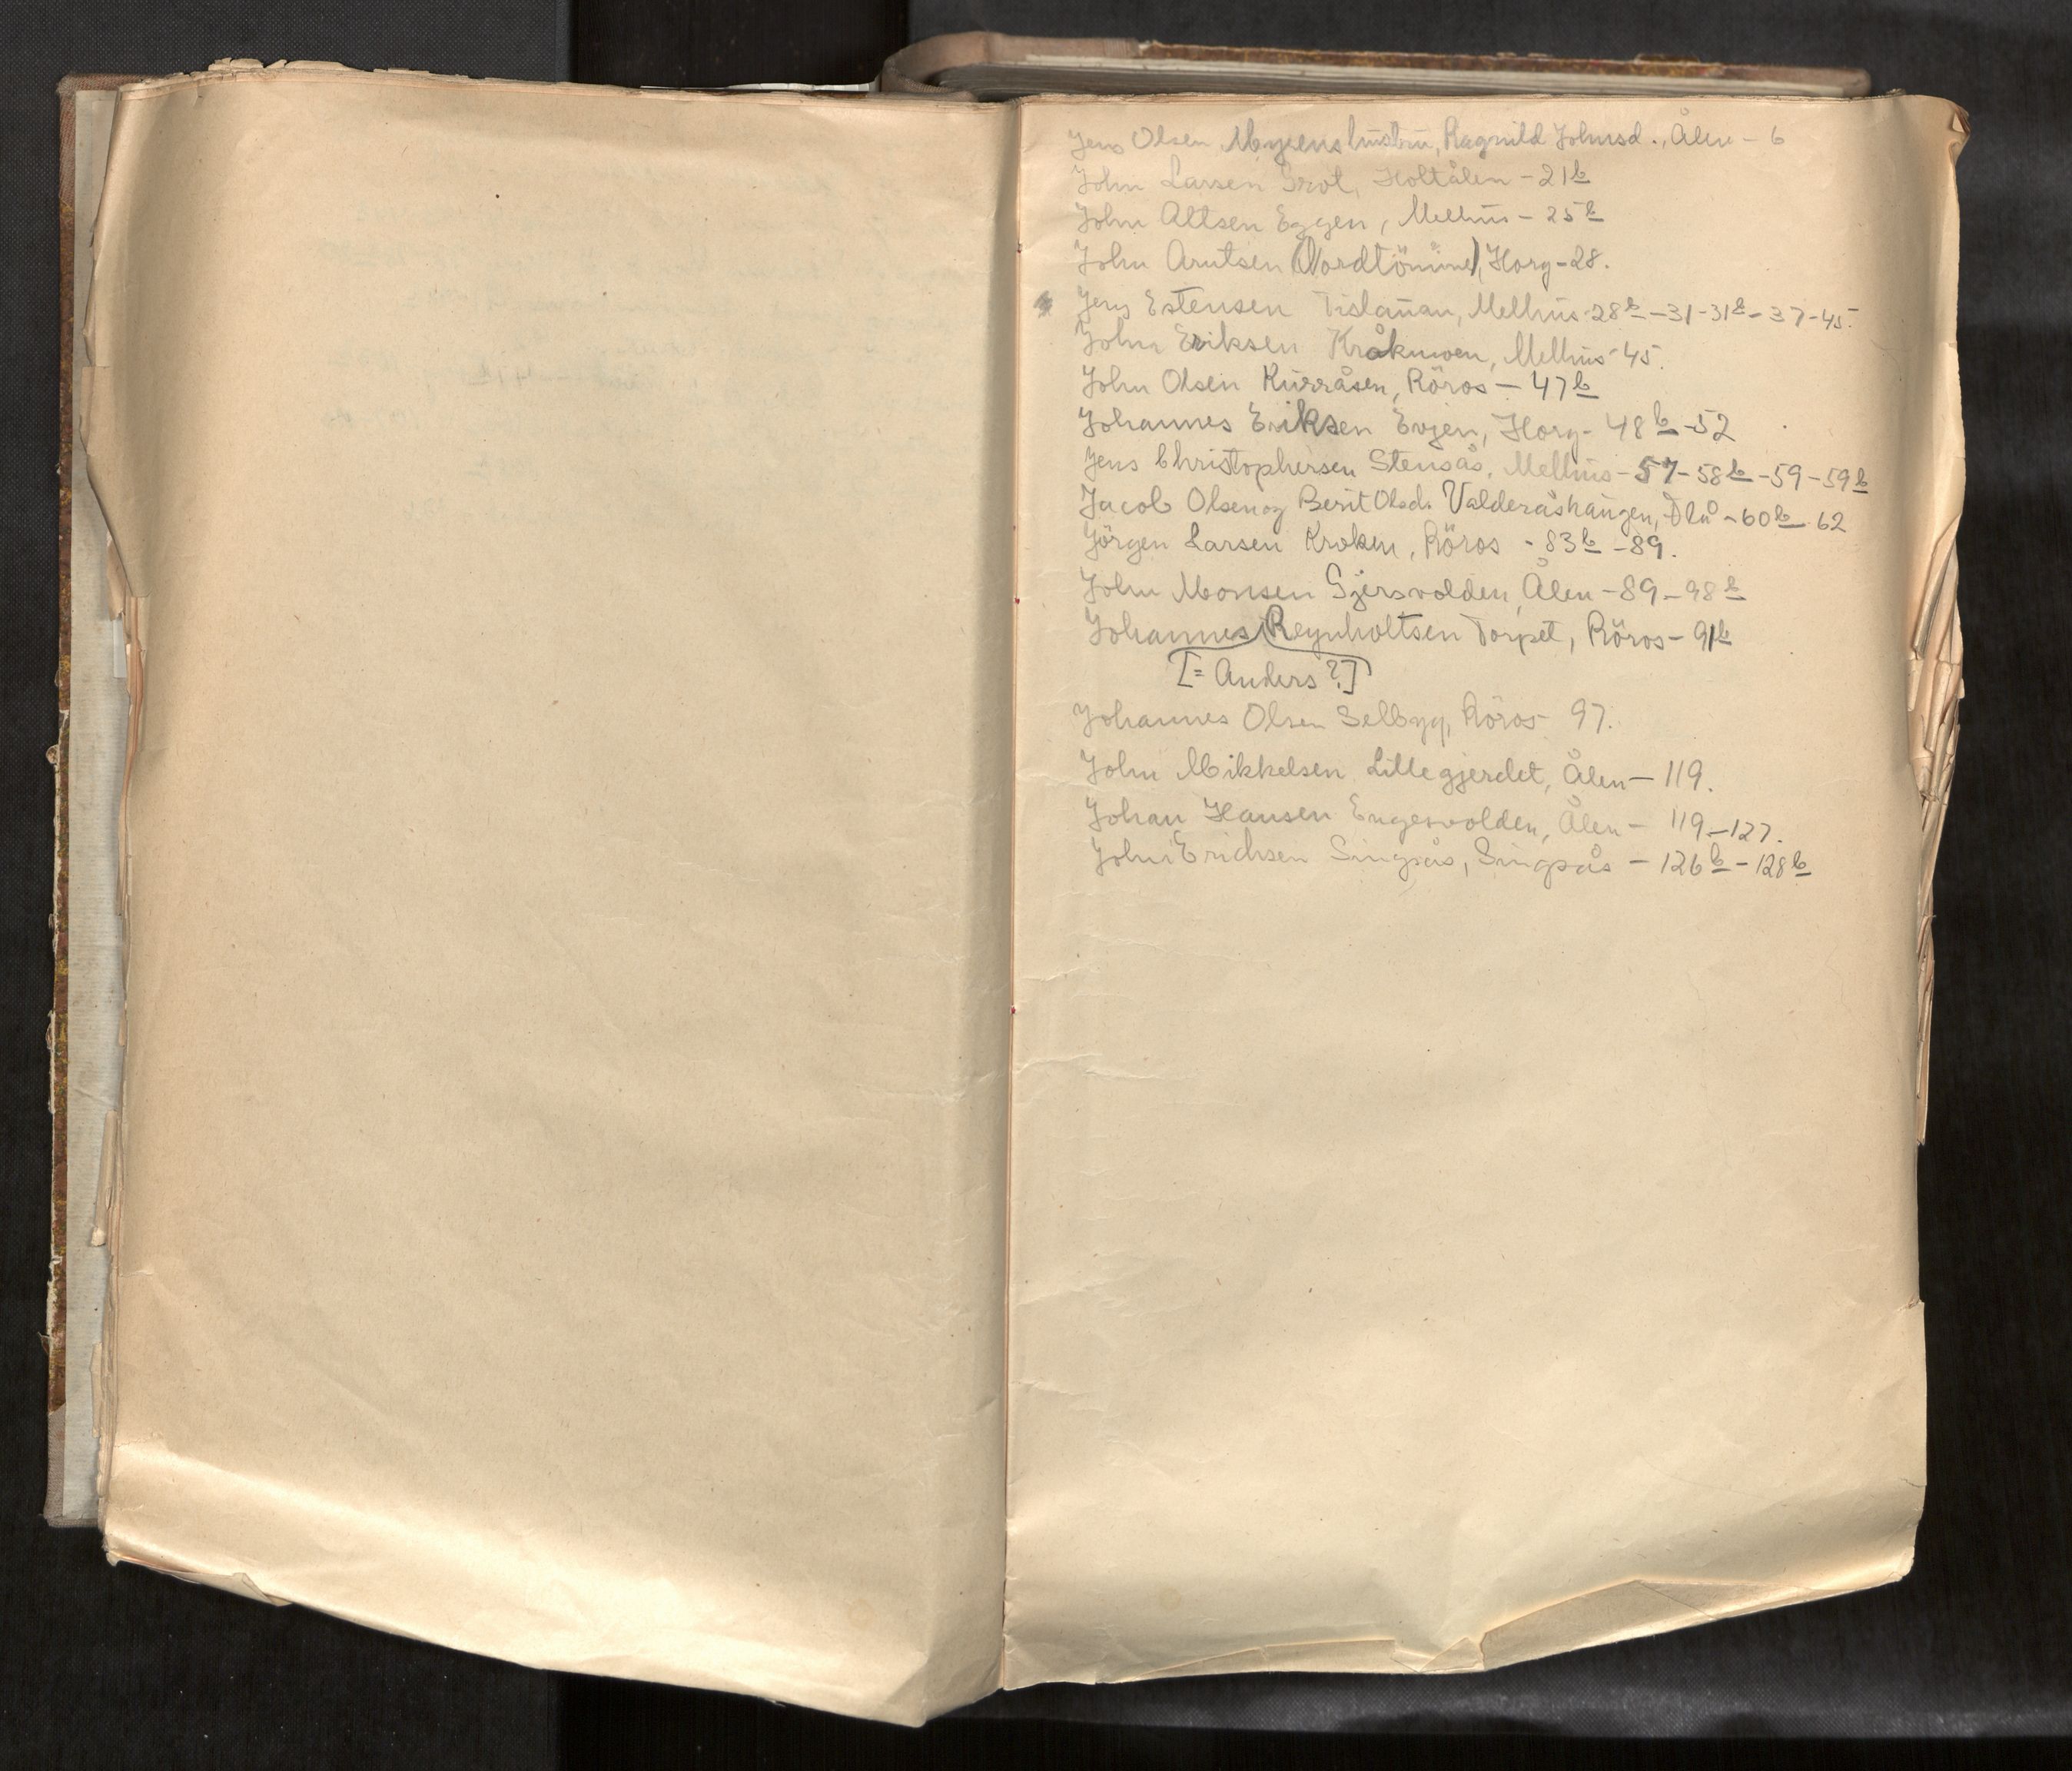 Jens Olsen Moyens hustru, Ragnild Johnsd., Ålen - 6
John Larsen Grot, Holtålen - 21b
John Altsen Eggen, Melhus - 25b
John Arntsen (Nordtömme), Horg - 28.
Jens Estensen Tislauan, Melhus - 28b - 31 - 31b - 37 - 45.
John Eriksen Kråkmoen, Melhus - 45.
John Olsen Kurråsen, Röros - 47b
Johannes Eriksen Evjen, Horg - 48b - 52
Jens Christophersen Stensås, Melhus - 57 - 58b - 59 - 59b
Jacob Olsen og Berit Olsd. Valderåshaugen, - 60b - 62
Jörgen Larsen Kroken, Röros - 83b - 89.
John Monsen Gjersvolden, Ålen - 89 - 98b
Johannes Reynholtsen Torpet, Röros - 91b
[= Anders?]
Johannes Olsen Selbyg, Röros - 97.
John Mikkelsen Lillegjerdet, Ålen - 119.
Johan Hansen Engesvolden, Ålen - 119 - 127.
John Erichsen Singsås, Singsås - 126b - 128b